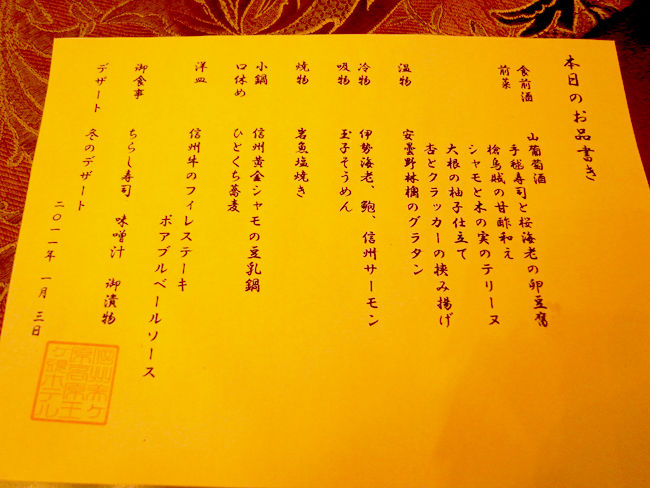 本日のお品書き
食前酒 山葡萄酒
前菜 手毬寿司と桜海老の卵豆腐
槍烏賊の甘酢和え
シャモと木の実のテリーヌ
大根の柚子仕立て
杏とクラッカーの挟み揚げ
温物 安曇野林檎のグラタン
冷物 伊勢海老、鮑、信州サーモン
吸物 玉子そうめん
焼物 岩魚塩焼き
小鍋 信州黄金シャモの豆乳鍋
口休め ひとくち蕎麦
洋皿 信州牛のフィレステーキ
ポアブルベールソース
御食事 ちらし寿司 味噌汁 御漬物
デザート 冬のデザート
二〇一一年 一月 三日